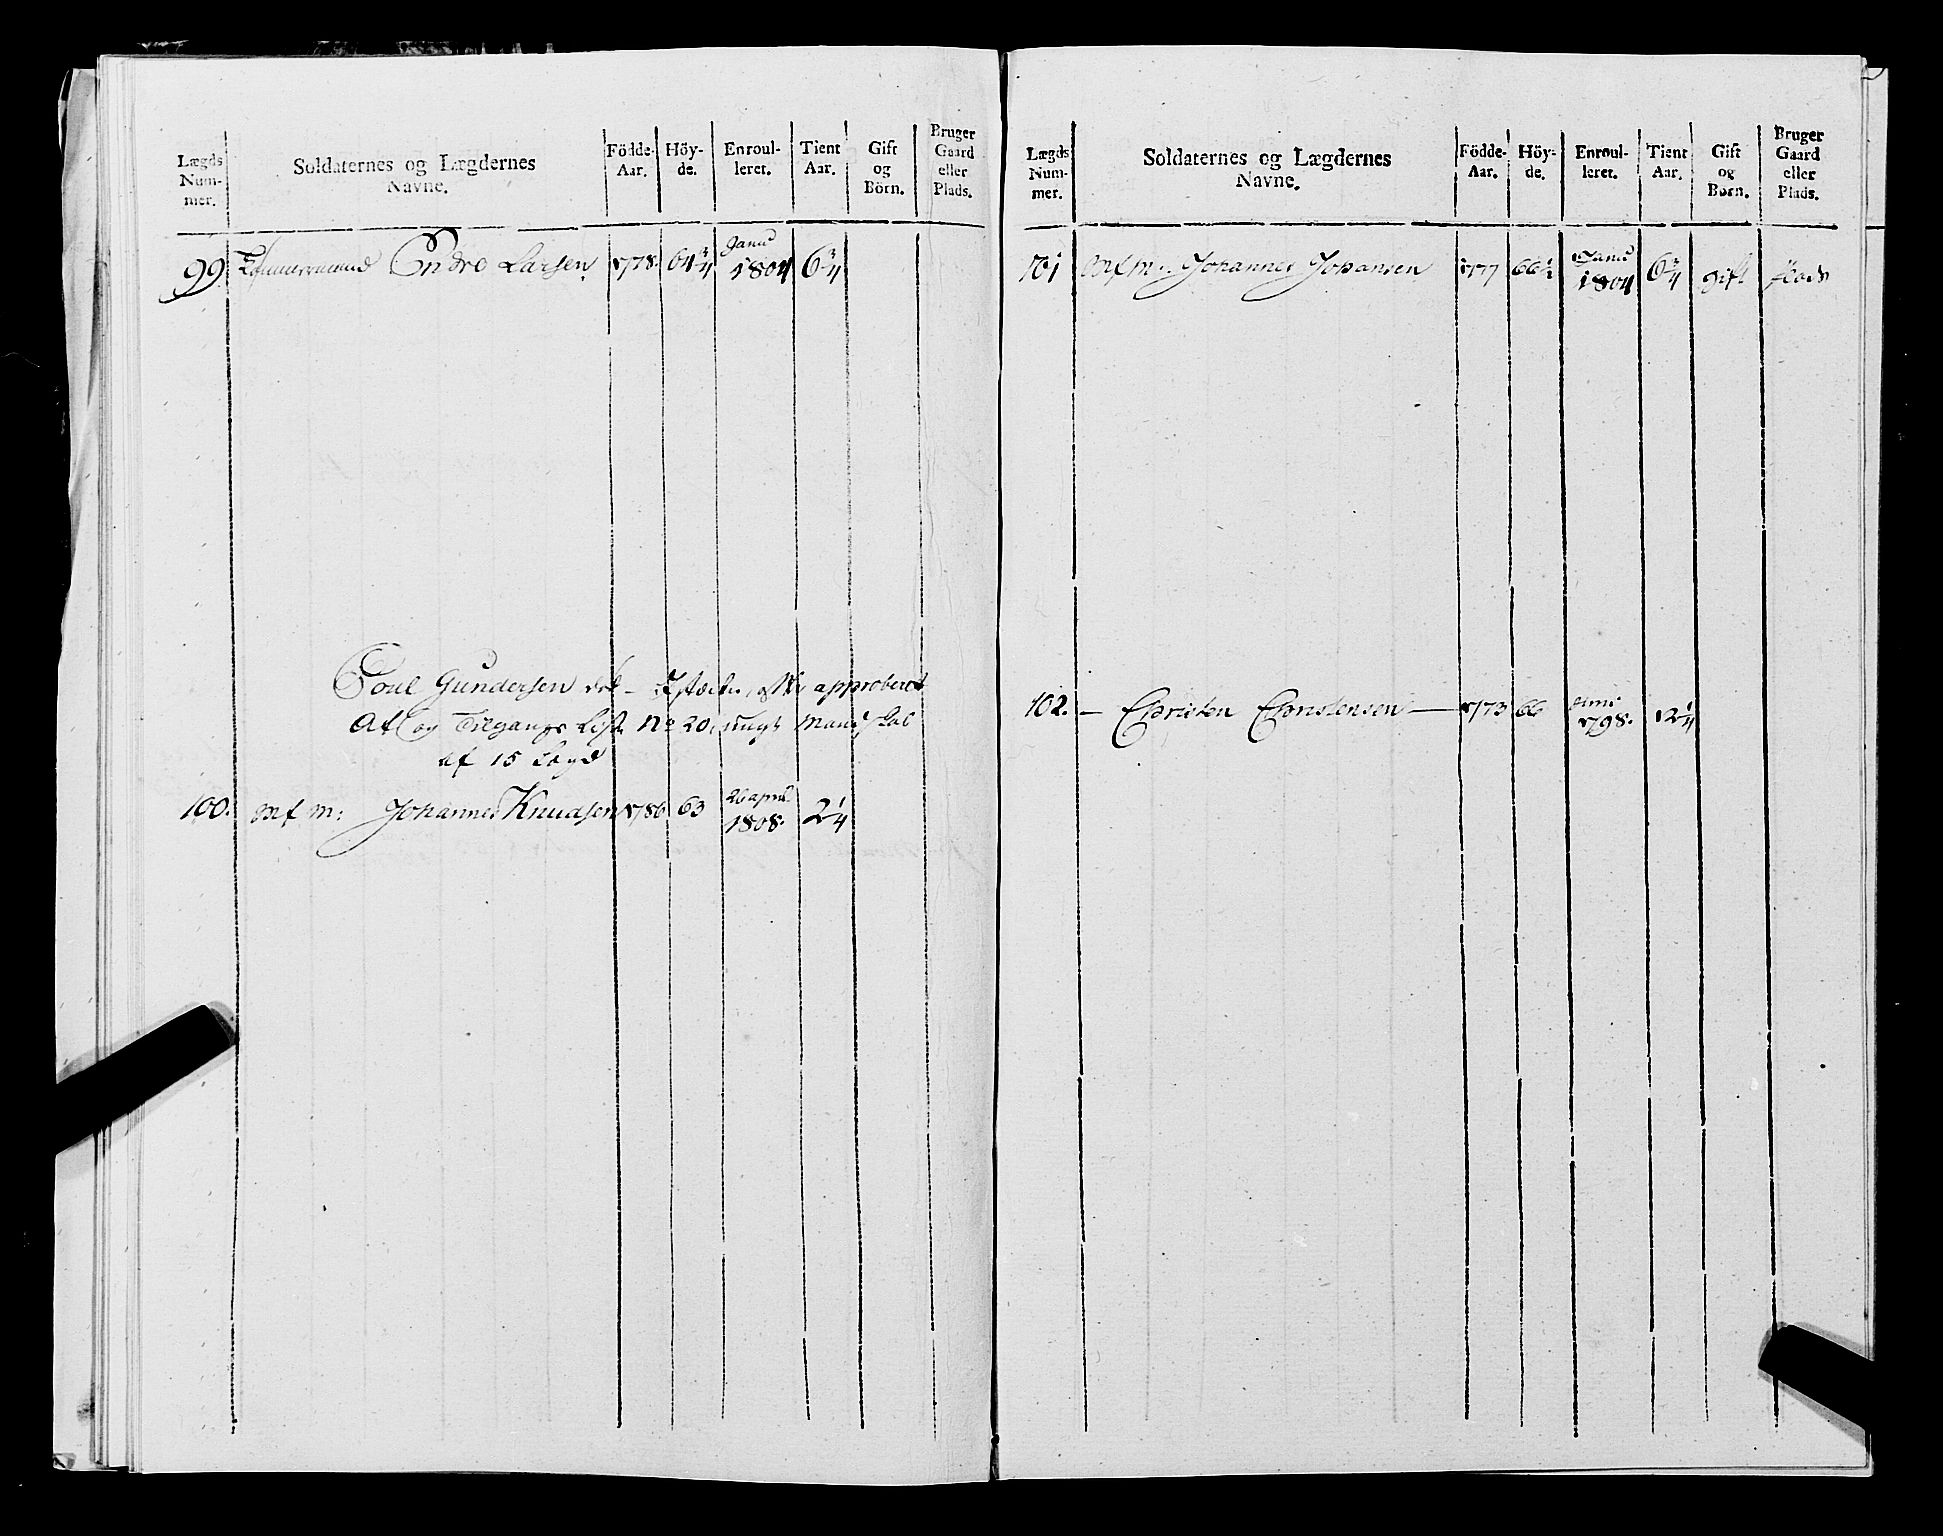 Lægds Num- mer.
Soldaternes og Lægdernes Navne.
Födde- Aar.
Höy- de.
Enroul- leret.
Tient Aar.
Gift og Börn.
Bruger Gaard eller Plads.
99. Tömmermand Endre Larsen 1778. 64 3/4 Janu 1804 6 3/4
Poul Gundersen approberet
Af og Tilgangs List No 20, Mandskab
af 15 Lægd
100. m: Johannes Knudsen 1786 63 26 april 1808. 2 1/4
Lægds Num- mer.
Soldaternes og Lægdernes Navne.
Födde- Aar.
Höy- de.
Enroul- leret.
Tient Aar.
Gift og Børn.
Bruger Gaard eller Plads.
101 m. Johannes Johansen 1777 66 1/2 Janu 1804 6 3/4 gift Plads
102. — Christen Christensen — 1773 66 1798. 12 1/4